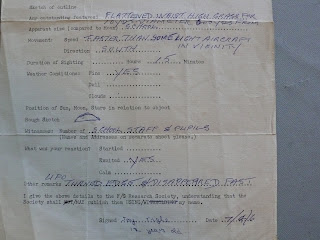 Marks or outline
Any outstanding features FLATTENED IN WEST HIGH GRASS FOR
Apparent size (compared to Moon)
Movement: Speed FASTER THAN SOME LIGHT AIRCRAFT
IN VICINITY
Direction SOUTH
Duration of sighting Hours 15 Minutes
Weather Conditions: Fine YES
Dull
Clouds
Position of Sun, Moon, Stars in relation to object
Rough Sketch
Witnesses: Number of SCHOOL STAFF & PUPILS
(Names and Addresses on separate sheet please.)
What was your reaction? Startled
Excited YES
Calm
Other remarks UFO TURNED DISAPPEARED FAST
I give the above details to the F/S Research Society, understanding that the
Society shall publish them my name.
Signed Date